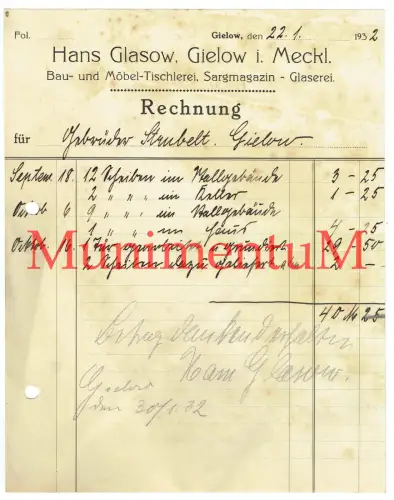 Pol.
Gielow, den 22. 1. 1932
Hans Glasow, Gielow i. Meckl.
Bau- und Möbel-Tischlerei, Sargmagazin - Glaserei.
Rechnung
für Gebrüder Strubelt. Gielow.
Septem 18. 12 Scheiben im Stallgebäude 3 - 25
2 " " im Keller 1 - 25
6 9 " " im Stallgebäude
1 " " im Haus 4 - 25
Oktob 16. 1 Tür 29 - 50
2 Scheiben dazu geliefert 2 -
MunimentuM
40 M 25
Betrag dankend erhalten
Hans Glasow.
Gielow
den 30/1. 32